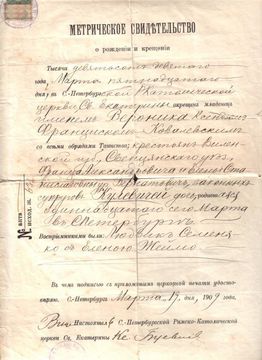 МЕТРИЧЕСКОЕ СВИДѢТЕЛЬСТВО
о рожденіи и крещеніи
Тысяча девятьсотъ девятаго
года, Марта пятнадцатаго
дня въ С.-Петербургской Католической
церкви Св. Екатерины окрещена младенца
именемъ Вероника Ксендзомъ
Францискомъ Ковалевскимъ
со всѣми обрядами Таинства; крестьянъ Вилен-
ской губ., Свенцянскаго уѣз.,
Франца Александровича и Елены Ста-
ниславовны законныхъ
супруговъ дочь, родившаяся
одиннадцатаго сего Марта
въ С.-Петербургѣ
Воспріемниками были:
съ Еленою
Въ чемъ подписью съ приложеніемъ церковной печати удосто-
вѣряю. С.-Петербургъ Марта 17 дня, 1909 года.
Настоятель С.-Петербургской Римско-Католической
церкви Св. Екатерины Кс.